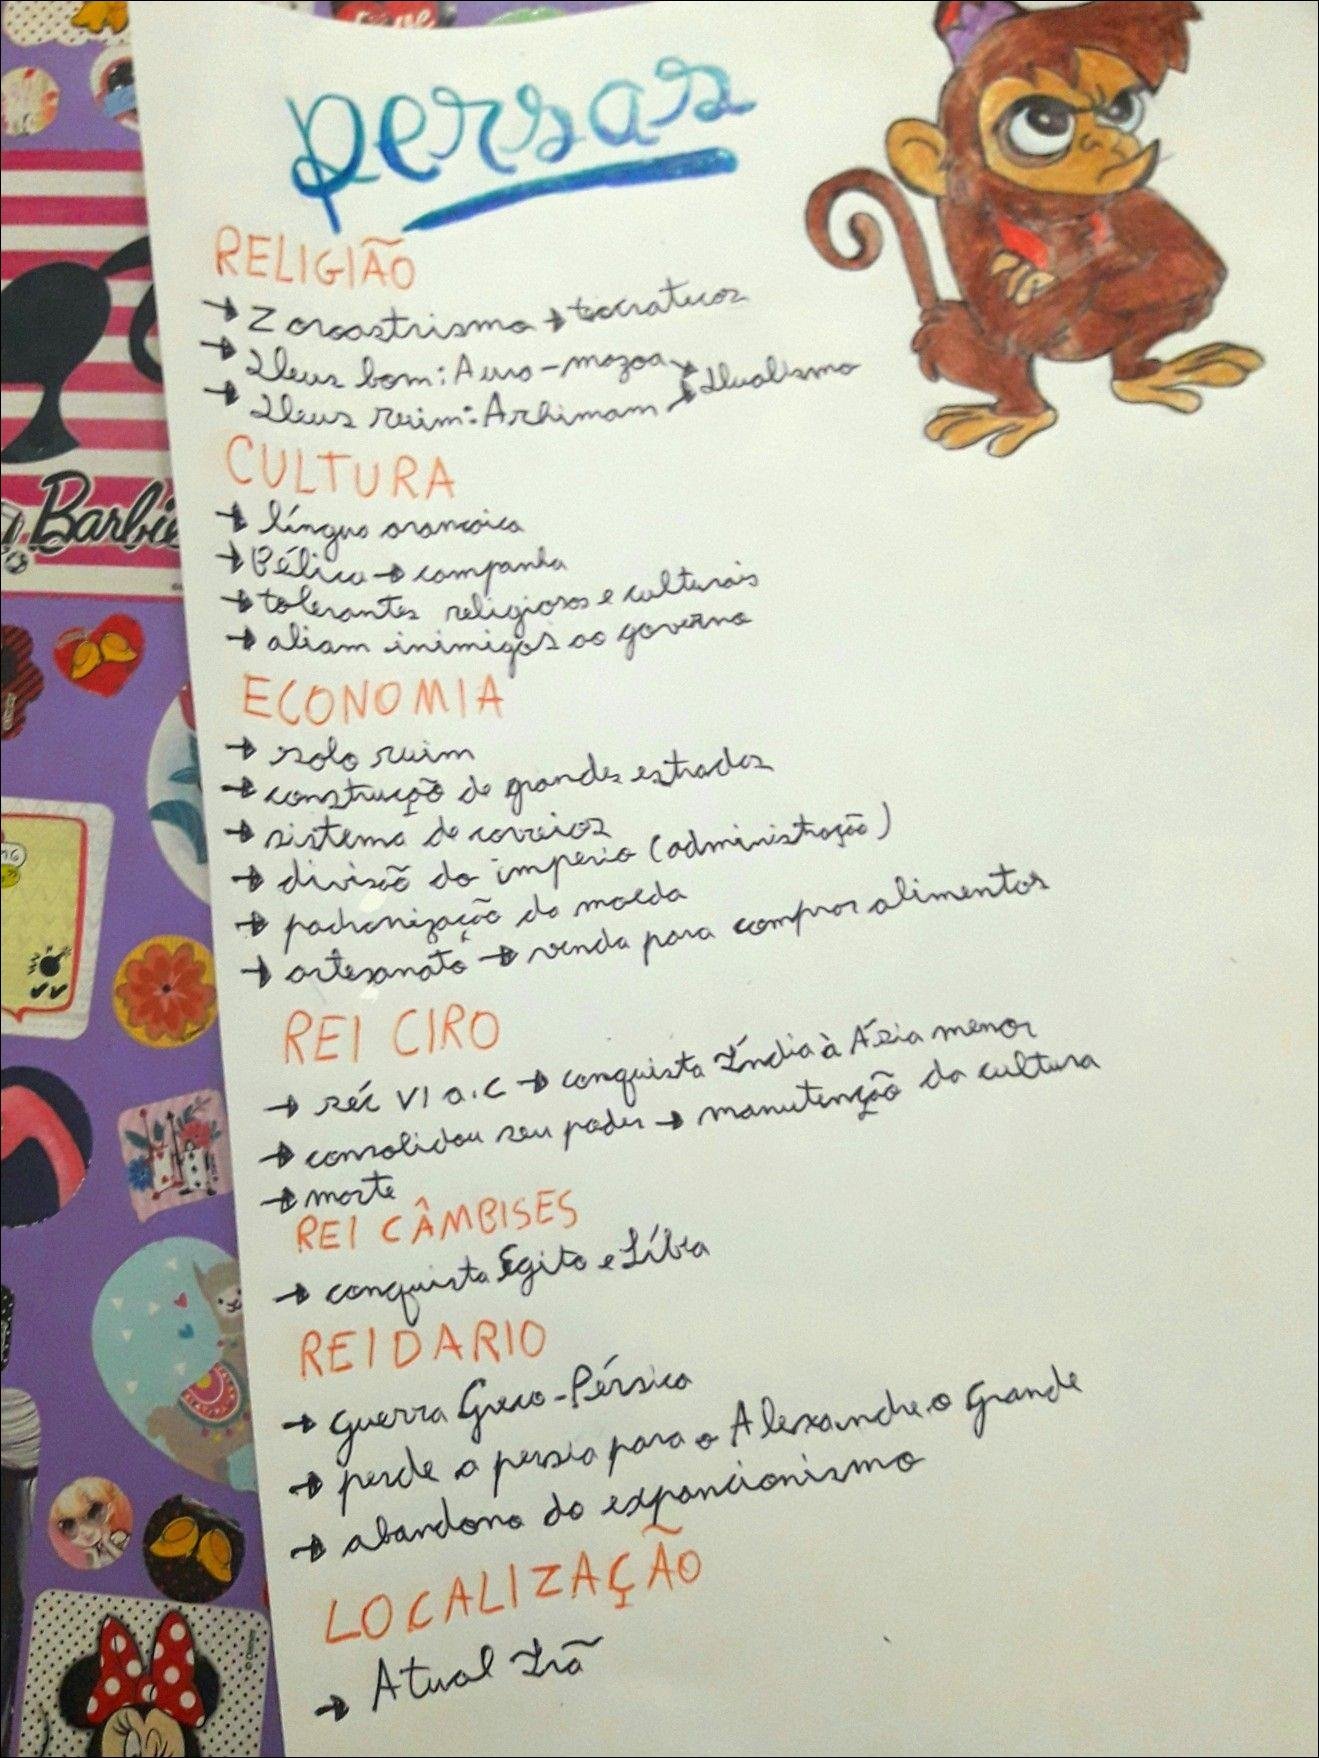 persas
RELIGIÃO
→ Zoroastrismo → teocraticos
→ Deus bom: Auro-mazoa → Dualismo
→ Deus ruim: Arhimam
CULTURA
→ língua aramaica
→ Bélica → campanha
→ tolerantes religiosos e culturais
→ aliam inimigos ao governo
ECONOMIA
→ solo ruim
→ construção de grandes estradas
→ sistema de correios
→ divisão do imperio (administração)
→ padronização da moeda
→ artesanato → venda para comprar alimentos
REI CIRO
→ séc VI a.C → conquista Índia à Ásia menor
→ consolidou seu poder → manutenção da cultura
→ morte
REI CÂMBISES
→ conquista Egito e Líbia
REI DARIO
→ guerra Greco-Pérsica
→ perde a persia para o Alexandre o Grande
→ abandono do expancionismo
LOCALIZAÇÃO
→ Atual Irã
Barbie